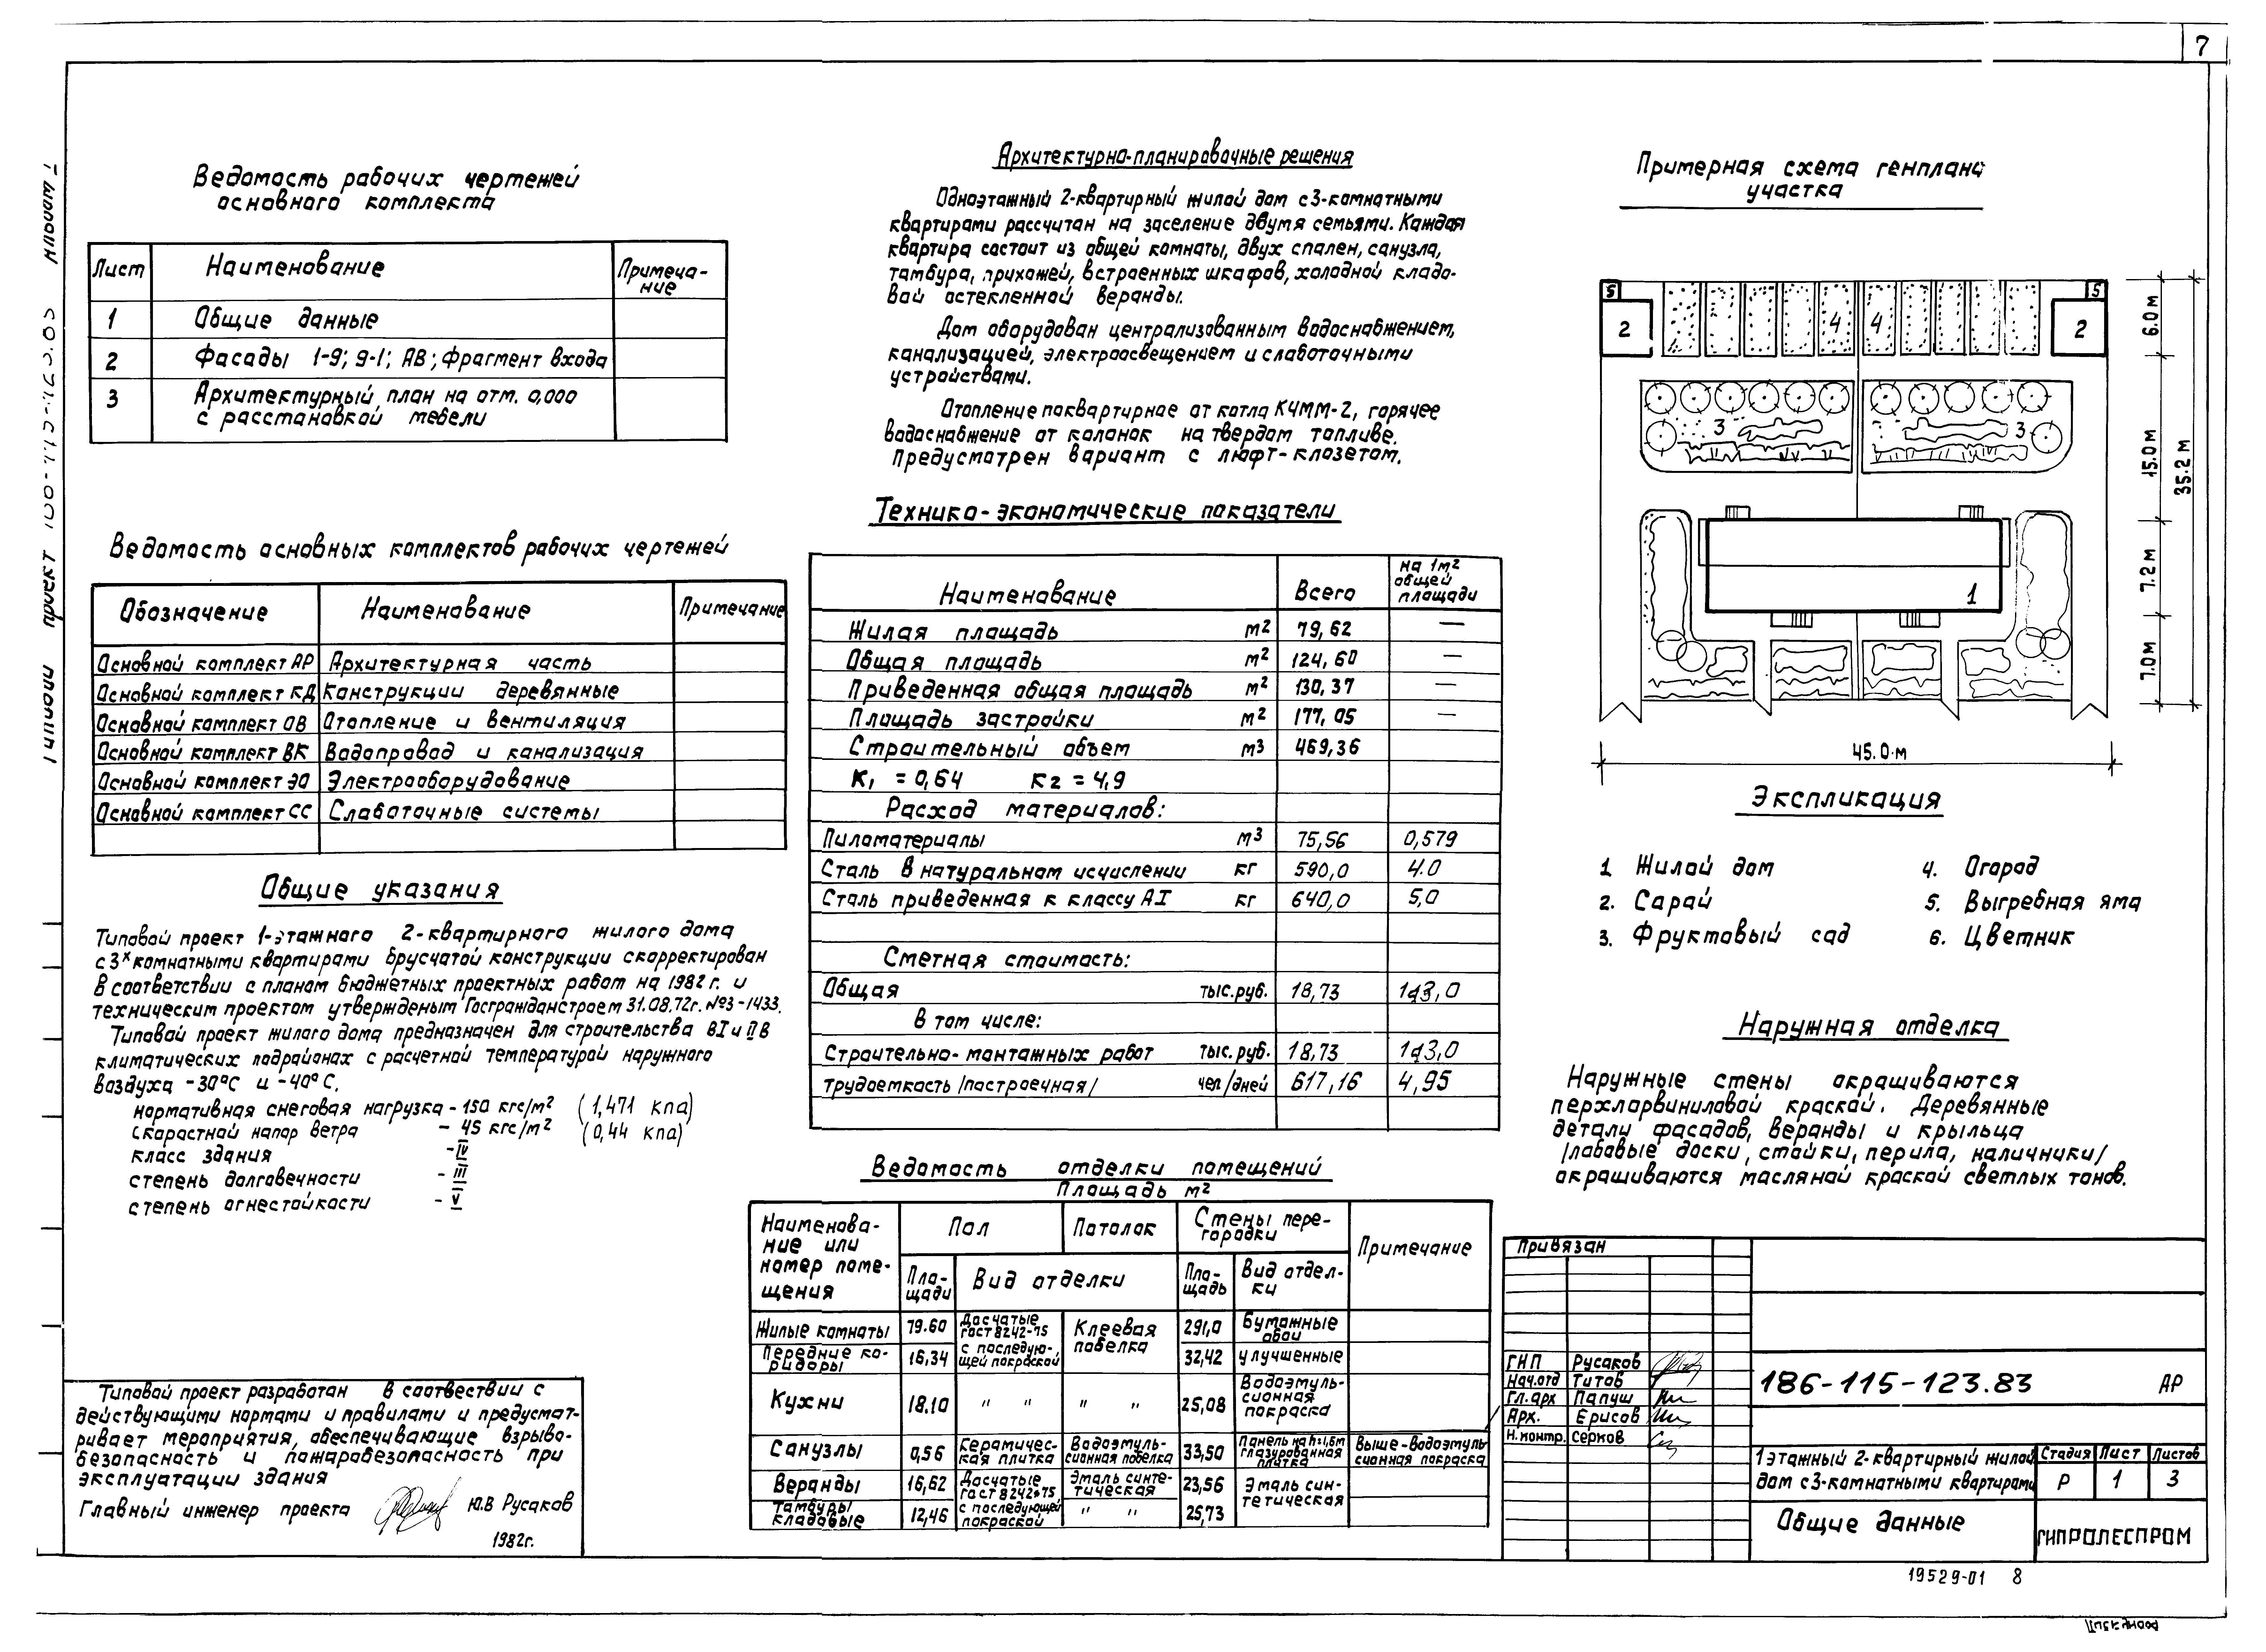 7
Ведомость рабочих чертежей
основного комплекта
Лист Наименование Примеча-
ние
1 Общие данные
2 Фасады 1-9; 9-1; АВ; Фрагмент входа
3 Архитектурный план на отм. 0,000
с расстановкой мебели
Ведомость основных комплектов рабочих чертежей
Обозначение Наименование Примечание
Основной комплект АР Архитектурная часть
Основной комплект КД Конструкции деревянные
Основной комплект ОВ Отопление и вентиляция
Основной комплект ВК Водопровод и канализация
Основной комплект ЭО Электрооборудование
Основной комплект СС Слаботочные системы
Общие указания
Типовой проект 1-этажного 2-квартирного жилого дома
с 3х комнатными квартирами брусчатой конструкции скорректирован
в соответствии с планом бюджетных проектных работ на 1982г. и
техническим проектом утвержденым Госгражданстроем 31.08.72г. №3-1433.
Типовой проект жилого дома предназначен для строительства в I и II В
климатических подрайонах с расчетной температурой наружного
воздуха -30°С и -40°С.
нормативная снеговая нагрузка - 150 кгс/м² (1,471 кпа)
скоростной напор ветра - 45 кгс/м² (0,44 кпа)
класс здания - IV
степень долговечности - III
степень огнестойкости - V
Типовой проект разработан в соотвествии с
действующими нормами и правилами и предусмат-
ривает мероприятия, обеспечивающие взрыво-
безопасность и пожаробезопасность при
эксплуатации здания
Главный инженер проекта Ю.В Русаков
1982г.
Архитектурно-планировочные решения
Одноэтажный 2-квартирный жилой дом с 3-комнатными
квартирами рассчитан на заселение двумя семьями. Каждая
квартира состоит из общей комнаты, двух спален, санузла,
тамбура, прихожей, встроенных шкафов, холодной кладо-
вой остекленной веранды.
Дом оборудован централизованным водоснабжением,
канализацией, электроосвещением и слаботочными
устройствами.
Отопление поквартирное от котла КЧММ-2, горячее
водоснабжение от колонок на твердом топливе.
Предусмотрен вариант с люфт-клозетом.
Технико-экономические показатели
Наименование Всего на 1м² общей площади
Жилая площадь м² 79,62 —
Общая площадь м² 124,60 —
Приведенная общая площадь м² 130,37 —
Площадь застройки м² 177,05 —
Строительный объем м³ 469,36
К₁ = 0,64 К2 = 4,9
Расход материалов:
Пиломатериалы м³ 75,56 0,579
Сталь в натуральном исчислении кг 590,0 4.0
Сталь приведенная к классу АI кг 640,0 5,0
Сметная стоимость:
Общая тыс.руб. 18,73 143,0
в том числе:
Строительно-монтажных работ тыс.руб. 18,73 143,0
трудоемкость /построечная/ чел/дней 617,16 4,95
Ведомость отделки помещений
Площадь м²
Наименова-
ние или
номер поме-
щения
Пол Потолок Стены пере-
городки Примечание
Пло-
щади Вид отделки Пло-
щадь Вид отдел-
ки
Жилые комнаты 79.60 Досчатые
гост 8242-75 Клеевая
побелка 291,0 Бумажные
обои
Передние ко-
ридоры 16,34 с последую-
щей покраской 32,42 улучшенные
Кухни 18.10 " " " " 25,08 Водоэмуль-
сионная
покраска
Санузлы 0,56 Керамичес-
кая плитка Водоэмуль-
сионная побелка 33,50 Панель на h=1,6м
глазурованная
плитка Выше-водоэмуль
сионная покраска
Веранды 16,62 Досчатые
гост 8242-75 Эмаль синте-
тическая 23,56 Эмаль син-
тетическая
Тамбуры
кладовые 12,46 с последующей
покраской " " 25,73
Примерная схема генплана
участка
5 5
2 4 4 2
3 3
1
6.0 м
15.0 м
7.2 м
7.0 м
35.2 м
45.0 м
Экспликация
1. Жилой дом
2. Сарай
3. Фруктовый сад
4. Огород
5. Выгребная яма
6. Цветник
Наружная отделка
Наружные стены окрашиваются
перхлорвиниловой краской. Деревянные
детали фасадов, веранды и крыльца
/лобовые доски, стойки, перила, наличники/
окрашиваются масляной краской светлых тонов.
Привязан
ГНП Русаков
Нач.отд Титов
Гл.арх Папуш
Арх. Ерисов
Н.контр. Серков
186-115-123.83 АР
1 этажный 2-квартирный жилой
дом с 3-комнатными квартирами
Стадия Лист Листов
Р 1 3
Общие данные
ГИПРОЛЕСПРОМ
19529-01 8